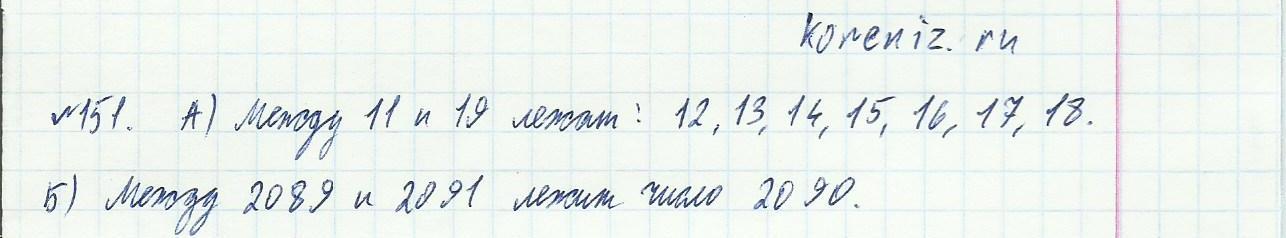 koreniz.ru
№151. А) Между 11 и 19 лежат: 12, 13, 14, 15, 16, 17, 18.
Б) Между 2089 и 2091 лежит число 2090.